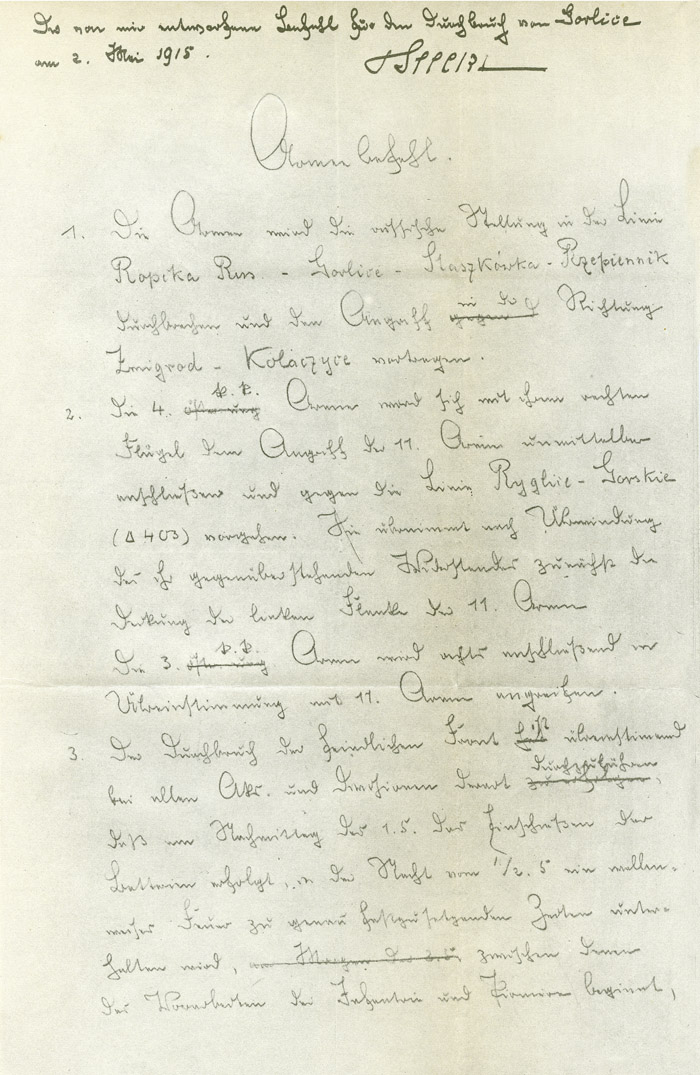 Der von mir entworfene Befehl für den Durchbruch von Gorlice
am 2. Mai 1915.
Armeebefehl.
1. Die Armee wird die russische Stellung in der Linie
Ropica Rus. - Gorlice - Staszkówka - Rzepiennik
durchbrechen und den Angriff gegen in der Richtung
Zmigrod - Kolaczyce vortragen.
2. Die 4. österr. ung. k.k. Armee wird sich mit ihrem rechten
Flügel dem Angriff der 11. Armee unmittelbar
anschließen und gegen die Linie Ryglice - Gorskie
(Δ 403) vorgehen. Sie übernimmt nach Überwindung
des ihr gegenüber stehenden Widerstandes zunächst die
Deckung der linken Flanke der 11. Armee
Die 3. österr. ung. k.k. Armee wird rechts anschließend in
Übereinstimmung mit 11. Armee angreifen.
3. Der Durchbruch der feindlichen Front ist übereinstimmend
bei allen AKs. und Divisionen derart zu erfolgen durchzuführen,
daß am Nachmittag des 1.5. das Einschießen der
Batterien erfolgt, in der Nacht vom 1/2. 5 ein wellen-
weises Feuer zu genau festzusetzenden Zeiten unter-
halten wird, am Morgen des 2.5. zwischen denen
das Vorarbeiten der Infanterie und Pioniere beginnt,